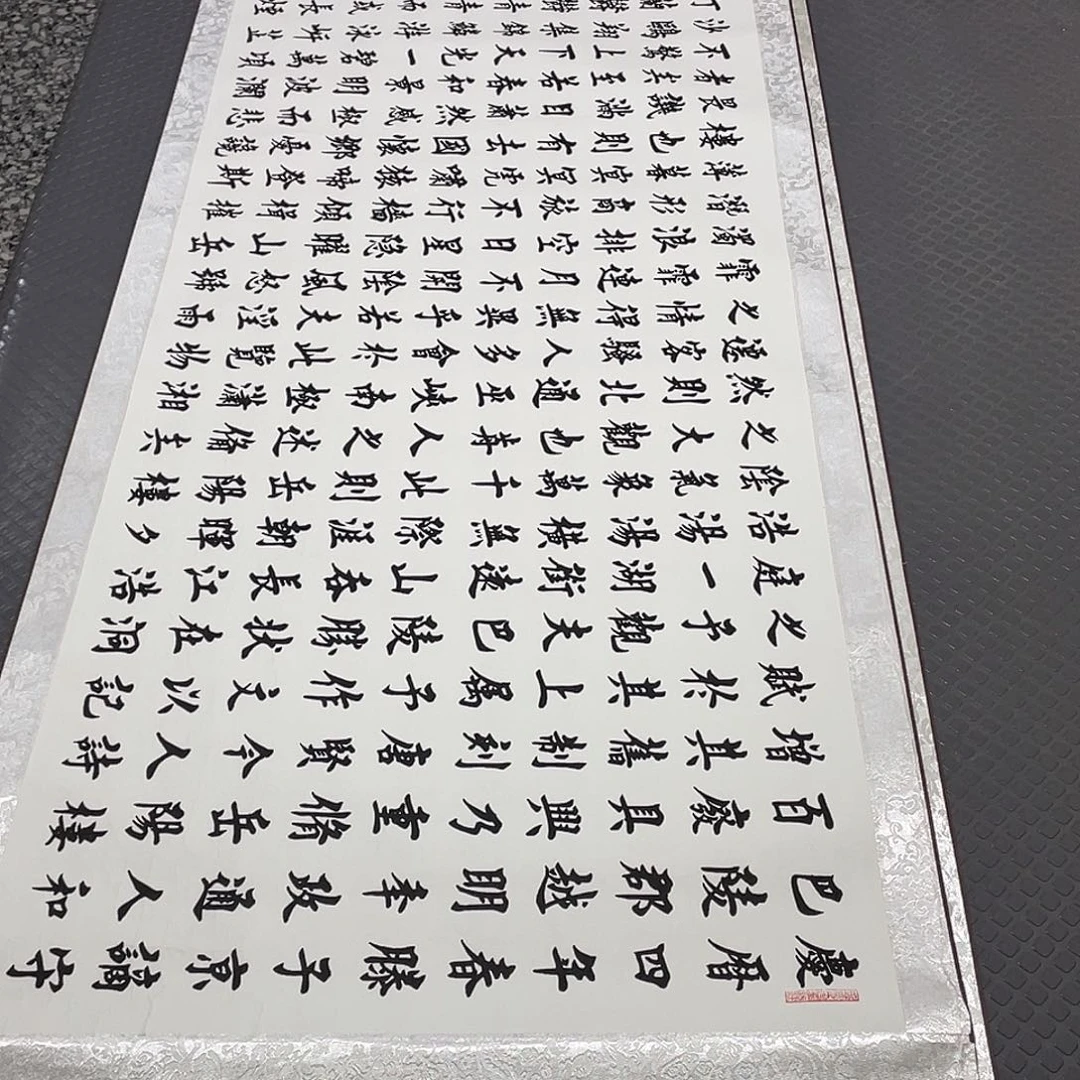 慶曆四年春滕子京謫守
巴陵郡越明年政通人和
百廢具興乃重脩岳陽樓
增其舊制刻唐賢今人詩
賦於其上属予作文以記
之予觀夫巴陵勝狀在洞
庭一湖銜遠山吞長江浩
浩湯湯橫無際涯朝暉夕
陰氣象萬千此則岳陽樓
之大觀也前人之述備矣
然則北通巫峽南極瀟湘
遷客騷人多會於此覽物
之情得無異乎若夫淫雨
霏霏連月不開陰風怒號
濁浪排空日星隐曜山岳
潛形商旅不行檣傾楫摧
薄暮冥冥虎嘯猿啼登斯
樓也則有去國懷鄉憂讒
畏譏滿目蕭然感極而悲
者矣至若春和景明波瀾
不驚上下天光一碧萬頃
沙鷗翔集錦鱗游泳岸芷
青青而或長煙